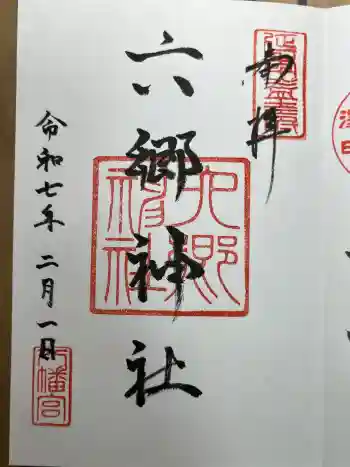 奉拝
六郷神社
六郷
神社
令和七年二月一日
八幡宮